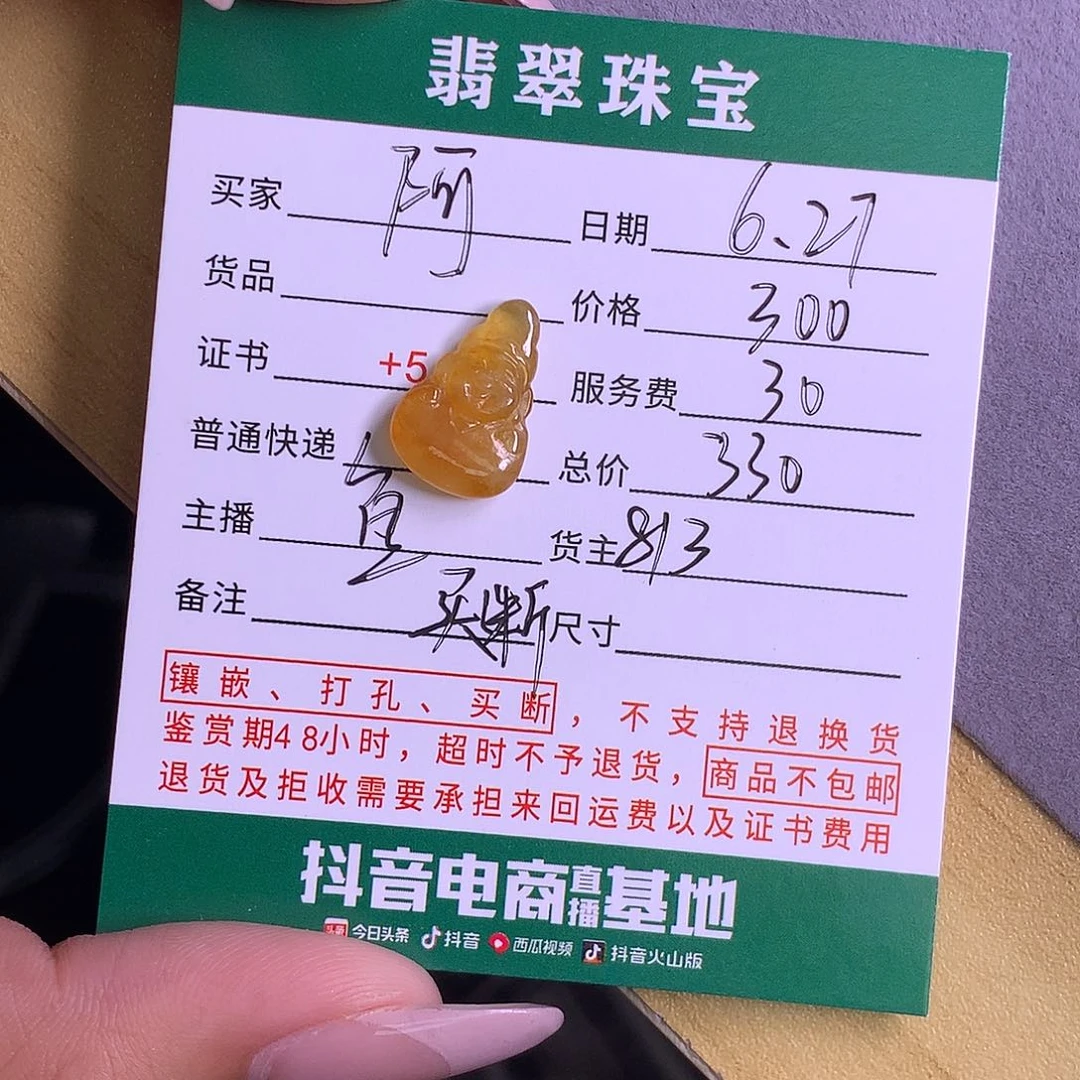 翡翠珠宝
买家 阿 日期 6.27
货品 价格 300
证书 +5 服务费 30
普通快递 总价 330
主播 货主 813
备注 买断 尺寸
镶嵌、打孔、买断，不支持退换货
鉴赏期48小时，超时不予退货，商品不包邮
退货及拒收需要承担来回运费以及证书费用
抖音电商直播基地
头条 今日头条 抖音 西瓜视频 抖音火山版